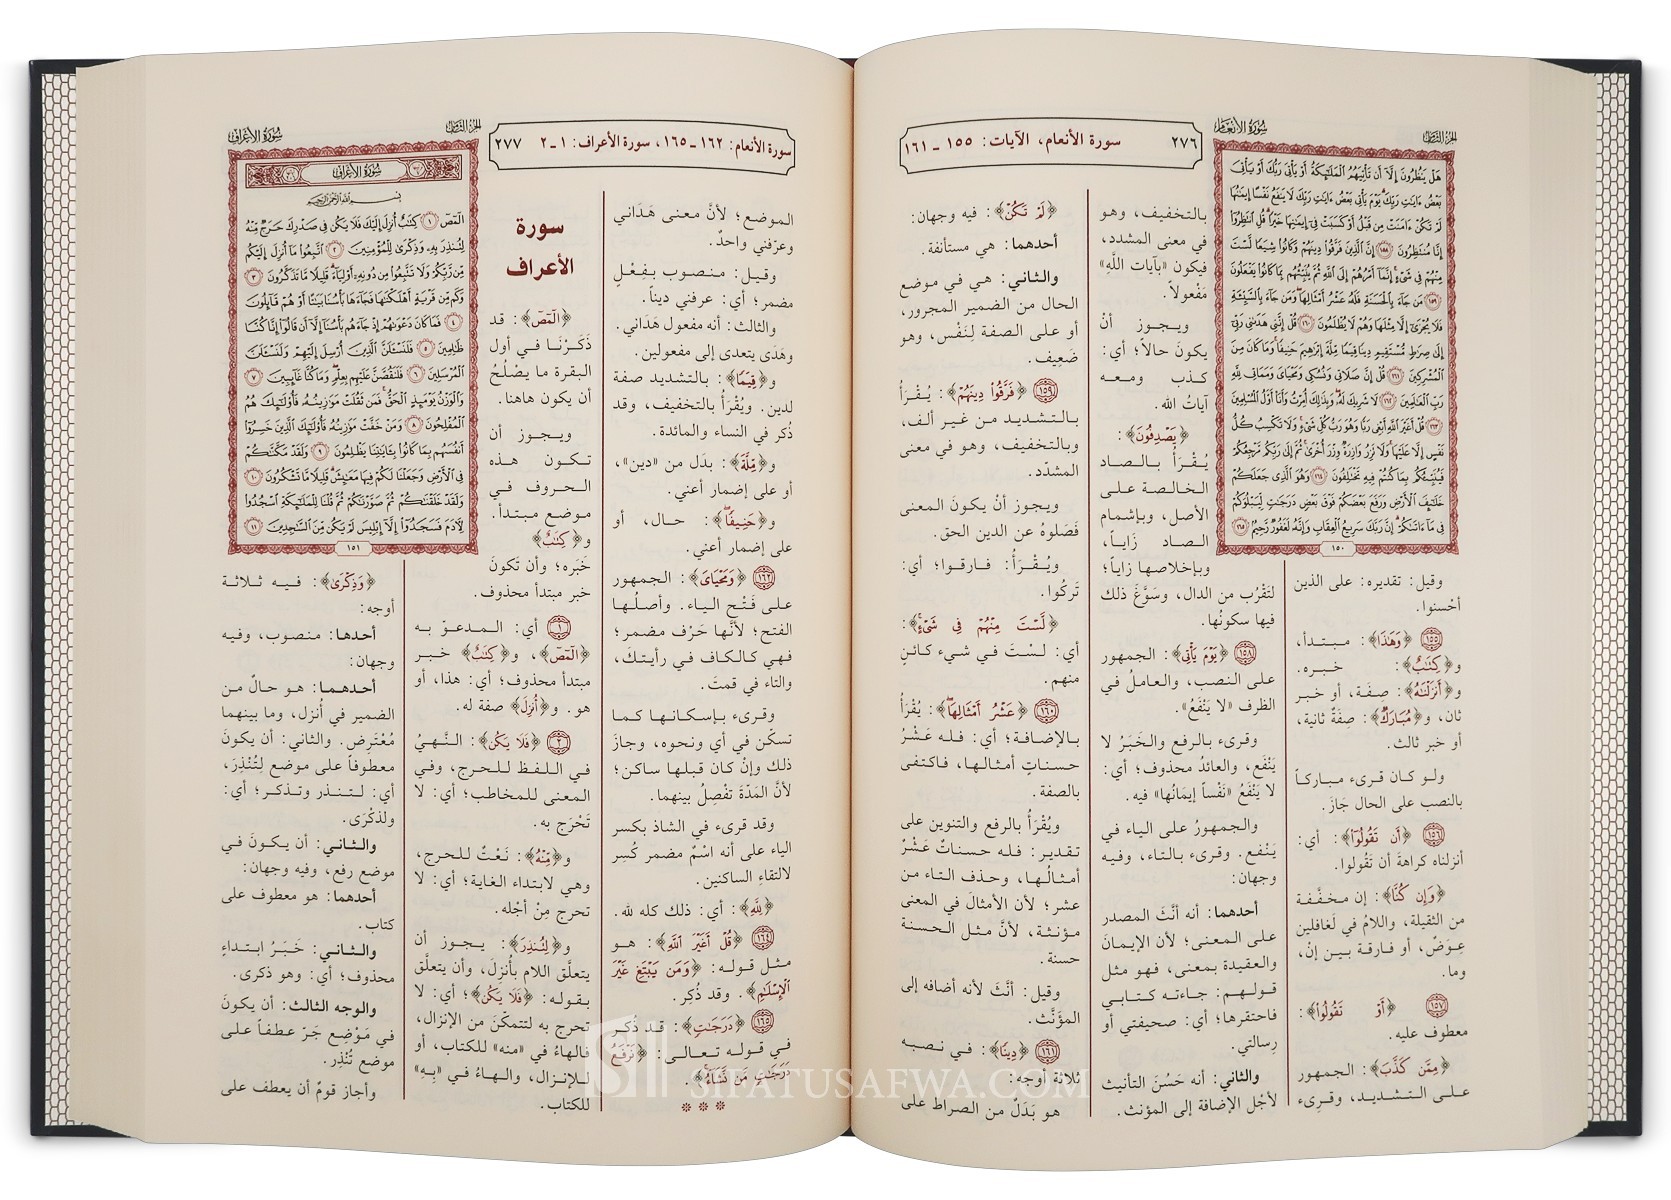 الجزء الثامن
سُورَةُ الأَنْعَامِ
٢٧٦ سورة الأنعام، الآيات: ١٥٥ ـ ١٦١
هَلْ يَنظُرُونَ إِلَّا أَن تَأْتِيَهُمُ الْمَلَٰٓئِكَةُ أَوْ يَأْتِىَ رَبُّكَ أَوْ يَأْتِىَ
بَعْضُ ءَايَٰتِ رَبِّكَ يَوْمَ يَأْتِى بَعْضُ ءَايَٰتِ رَبِّكَ لَا يَنفَعُ نَفْسًا إِيمَٰنُهَا
لَمْ تَكُنْ ءَامَنَتْ مِن قَبْلُ أَوْ كَسَبَتْ فِىٓ إِيمَٰنِهَا خَيْرًا قُلِ انتَظِرُوٓا
إِنَّا مُنتَظِرُونَ ١٥٨ إِنَّ الَّذِينَ فَرَّقُوا دِينَهُمْ وَكَانُوا شِيَعًا لَّسْتَ
مِنْهُمْ فِى شَىْءٍ إِنَّمَآ أَمْرُهُمْ إِلَى اللَّهِ ثُمَّ يُنَبِّئُهُم بِمَا كَانُوا يَفْعَلُونَ
١٥٩ مَن جَآءَ بِالْحَسَنَةِ فَلَهُۥ عَشْرُ أَمْثَالِهَا وَمَن جَآءَ بِالسَّيِّئَةِ
فَلَا يُجْزَىٰٓ إِلَّا مِثْلَهَا وَهُمْ لَا يُظْلَمُونَ ١٦٠ قُلْ إِنَّنِى هَدَىٰنِى رَبِّىٓ
إِلَىٰ صِرَٰطٍ مُّسْتَقِيمٍ دِينًا قِيَمًا مِّلَّةَ إِبْرَٰهِيمَ حَنِيفًا وَمَا كَانَ مِنَ
الْمُشْرِكِينَ ١٦١ قُلْ إِنَّ صَلَاتِى وَنُسُكِى وَمَحْيَاىَ وَمَمَاتِى لِلَّهِ
رَبِّ الْعَٰلَمِينَ ١٦٢ لَا شَرِيكَ لَهُۥ وَبِذَٰلِكَ أُمِرْتُ وَأَنَا۠ أَوَّلُ الْمُسْلِمِينَ
١٦٣ قُلْ أَغَيْرَ اللَّهِ أَبْغِى رَبًّا وَهُوَ رَبُّ كُلِّ شَىْءٍ وَلَا تَكْسِبُ كُلُّ
نَفْسٍ إِلَّا عَلَيْهَا وَلَا تَزِرُ وَازِرَةٌ وِزْرَ أُخْرَىٰ ثُمَّ إِلَىٰ رَبِّكُم مَّرْجِعُكُمْ
فَيُنَبِّئُكُم بِمَا كُنتُمْ فِيهِ تَخْتَلِفُونَ ١٦٤ وَهُوَ الَّذِى جَعَلَكُمْ
خَلَٰٓئِفَ الْأَرْضِ وَرَفَعَ بَعْضَكُمْ فَوْقَ بَعْضٍ دَرَجَٰتٍ لِّيَبْلُوَكُمْ
فِى مَآ ءَاتَىٰكُمْ إِنَّ رَبَّكَ سَرِيعُ الْعِقَابِ وَإِنَّهُۥ لَغَفُورٌ رَّحِيمٌ ١٦٥
١٥٠
وقيل: تقديره: على الذين
أحْسنوا.
١٥٥ ﴿وَهَٰذَا﴾: مبتدأ،
و﴿كِتَٰبٌ﴾: خبره.
و﴿أَنزَلْنَٰهُ﴾: صِفَة، أو خبر
ثان، و﴿مُبَارَكٌ﴾: صِفَةٌ ثانية،
أو خبر ثالث.
ولو كان قرىء مباركاً
بالنصب على الحال جَازَ.
١٥٦ ﴿أَن تَقُولُوٓا﴾: أي:
أنزلناه كراهةَ أن تَقُولوا.
﴿وَإِن كُنَّا﴾: إن مخفَّفة
من الثقيلة، واللامُ في لَغافلين
عِوَضٌ، أو فارقة بين إنْ،
وما.
١٥٧ ﴿أَوْ تَقُولُوا﴾:
معطوف عليه.
﴿مِمَّن كَذَّبَ﴾: الجمهور
على التشديد، وقرىء
بالتخفيف، وهو
في معنى المشدد،
فيكون «بآيات اللَّهِ»
مَفْعولاً.
ويـجـوز أنْ
يكونَ حالاً؛ أي:
كـذب ومـعـه
آياتُ الله.
﴿يَصْدِفُونَ﴾:
يُـقْـرَأُ بـالـصـاد
الـخـالـصـة عـلـى
الأصل، وبإشمام
الـصـاد زَايـاً،
وبإخلاصها زاياً؛
لتَقْرُب من الدال، وسَوَّغَ ذلك
فيها سكونُها.
١٥٨ ﴿يَوْمَ يَأْتِى﴾: الجمهور
على النصب، والعاملُ في
الظرف «لا يَنْفَعُ».
وقرىء بالرفع والخَبَرُ لا
يَنْفَع، والعائدُ محذوف؛ أي:
لا يَنْفَعُ «نَفْساً إيمَانُها» فيه.
والجمهورُ على الياء في
يَنْفع. وقرىء بالتاء، وفيه
وجهان:
أحدهما: أنه أنَّثَ المصدر
على المعنى؛ لأن الإيمانَ
والعقيدة بمعنى، فهو مثل
قـولـهـم: جـاءتـه كـتـابـي
فاحتقرها؛ أي: صحيفتي أو
رِسالتي.
والثاني: أنه حَسُنَ التأنيث
لأجْل الإضافة إلى المؤنث.
﴿لَمْ تَكُنْ﴾: فيه وجهان:
أحدهما: هي مستأنفة.
والثاني: هي في موضع
الحال من الضمير المجرور،
أو على الصفة لِنَفْس، وهو
ضَعِيف.
١٥٩ ﴿فَرَّقُوا دِينَهُمْ﴾: يُـقْـرَأُ
بـالـتـشـديـد مـن غـيـر ألـف،
وبالتخفيف، وهو في معنى
المشدّد.
ويـجـوز أنْ يكـونَ المعنى
فَصَلوهُ عن الدين الحق.
ويُـقْـرَأُ: فـارقـوا؛ أي:
تَركُوا.
﴿لَّسْتَ مِنْهُمْ فِى شَىْءٍ﴾:
أي: لـسْـتَ في شـيء كـائـنٍ
منهم.
١٦٠ ﴿عَشْرُ أَمْثَالِهَا﴾: يُقْرَأُ
بـالإضـافـة؛ أي: فـلـه عَـشْـرُ
حسنـاتٍ أمثـالـهـا، فـاكتفـى
بالصفة.
ويُقْرَأُ بالرفع والتنوين على
تـقـديـر: فـلـه حـسـنـاتٌ عَـشْـرٌ
أمثالُـهـا، وحذف التاء من
عشر؛ لأن الأمثالَ في المعنى
مؤنـثـة، لأنَّ مـثـل الـحسنة
حسنة.
وقيل: أنَّثَ لأنه أضافه إلى
المؤنَّث.
١٦١ ﴿دِينًا﴾: فـي نـصـبـه
ثلاثة أوجه:
هو بَدَلٌ من الصراط على
سورة الأنعام: ١٦٢ ـ ١٦٥، سورة الأعراف: ١ـ٢ ٢٧٧
الجزء الثامن
سُورَةُ الأَعْرَافِ
سُورَةُ الأَعْرَافِ
بِسْمِ اللَّهِ الرَّحْمَٰنِ الرَّحِيمِ
الٓمٓصٓ ١ كِتَٰبٌ أُنزِلَ إِلَيْكَ فَلَا يَكُن فِى صَدْرِكَ حَرَجٌ مِّنْهُ
لِتُنذِرَ بِهِۦ وَذِكْرَىٰ لِلْمُؤْمِنِينَ ٢ اتَّبِعُوا مَآ أُنزِلَ إِلَيْكُم
مِّن رَّبِّكُمْ وَلَا تَتَّبِعُوا مِن دُونِهِۦٓ أَوْلِيَآءَ قَلِيلًا مَّا تَذَكَّرُونَ ٣
وَكَم مِّن قَرْيَةٍ أَهْلَكْنَٰهَا فَجَآءَهَا بَأْسُنَا بَيَٰتًا أَوْ هُمْ قَآئِلُونَ
٤ فَمَا كَانَ دَعْوَىٰهُمْ إِذْ جَآءَهُم بَأْسُنَآ إِلَّآ أَن قَالُوٓا إِنَّا كُنَّا
ظَٰلِمِينَ ٥ فَلَنَسْـَٔلَنَّ الَّذِينَ أُرْسِلَ إِلَيْهِمْ وَلَنَسْـَٔلَنَّ
الْمُرْسَلِينَ ٦ فَلَنَقُصَّنَّ عَلَيْهِم بِعِلْمٍ وَمَا كُنَّا غَآئِبِينَ ٧
وَالْوَزْنُ يَوْمَئِذٍ الْحَقُّ فَمَن ثَقُلَتْ مَوَٰزِينُهُۥ فَأُولَٰٓئِكَ هُمُ
الْمُفْلِحُونَ ٨ وَمَنْ خَفَّتْ مَوَٰزِينُهُۥ فَأُولَٰٓئِكَ الَّذِينَ خَسِرُوٓا
أَنفُسَهُم بِمَا كَانُوا بِـَٔايَٰتِنَا يَظْلِمُونَ ٩ وَلَقَدْ مَكَّنَّٰكُمْ
فِى الْأَرْضِ وَجَعَلْنَا لَكُمْ فِيهَا مَعَٰيِشَ قَلِيلًا مَّا تَشْكُرُونَ ١٠
وَلَقَدْ خَلَقْنَٰكُمْ ثُمَّ صَوَّرْنَٰكُمْ ثُمَّ قُلْنَا لِلْمَلَٰٓئِكَةِ اسْجُدُوا
لِـَٔادَمَ فَسَجَدُوٓا إِلَّآ إِبْلِيسَ لَمْ يَكُن مِّنَ السَّٰجِدِينَ ١١
١٥١
الموضع؛ لأنَّ معنى هَدَاني
وعرّفني واحدٌ.
وقـيـل: مـنـصـوب بـفِـعْـلٍ
مضمر؛ أي: عرفني ديناً.
والثالث: أنه مفعول هَدَاني.
وهَدَى يتعدى إلى مفعولين.
و﴿قِيَمًا﴾: بالتشديد صفة
لدين. ويُقْرَأُ بالتخفيف، وقد
ذُكر في النساء والمائدة.
و﴿مِّلَّةَ﴾: بدَل من «دين»،
أو على إضمار أعني.
و﴿حَنِيفًا﴾: حـال، أو
على إضمار أعني.
١٦٢ ﴿وَمَحْيَاىَ﴾: الجمهور
علـى فَـتْـح اليـاء. وأصلُـهـا
الفتح؛ لأنَّها حَرْف مضمر؛
فـهـي كـالـكـاف فـي رأيـتـكَ،
والتاء في قمتَ.
وقـرىء بـإسـكـانـهـا كـمـا
تسكّن في أي ونحوه، وجازَ
ذلك وإنْ كان قبلها ساكن؛
لأنَّ المَدّةَ تفْصِلُ بينهما.
وقد قرىء في الشاذ بكسر
الياء على أنه اسْمٌ مضمر كُسِر
لالتقاءِ الساكنين.
﴿لِلَّهِ﴾: أي: ذلك كله لله.
١٦٤ ﴿قُلْ أَغَيْرَ اللَّهِ﴾: هـو
مثل قـولـه: ﴿وَمَن يَبْتَغِ غَيْرَ
الْإِسْلَٰمِ﴾. وقد ذُكِر.
١٦٥ ﴿دَرَجَٰتٍ﴾: قد ذُكـر
في قوله تـعـالـى: ﴿نَرْفَعُ
دَرَجَٰتٍ مَّن نَّشَآءُ﴾.
سورة
الأعراف
﴿الٓمٓصٓ﴾: قد
ذَكَرْنَا في أول
البقرة ما يصْلُحُ
أن يكون هاهنا.
ويـجـوز أن
تـكـون هـذه
الـحـروف فـي
موضع مبتدأ.
و﴿كِتَٰبٌ﴾
خَبَره؛ وأن تكونَ
خبر مبتدأ محذوف.
١ أي: الـمـدعـوّ بـه
﴿الٓمٓصٓ﴾، و﴿كِتَٰبٌ﴾ خبر
مبتدأ محذوف؛ أي: هذا، أو
هو. و﴿أُنزِلَ﴾ صفة له.
٢ ﴿فَلَا يَكُن﴾: النَّـهـيُ
في اللـفـظ للـحرج، وفي
المعنى للمخاطب؛ أي: لا
تَحْرَج به.
و﴿مِّنْهُ﴾: نَعْتٌ للـحرج،
وهي لابتداء الغاية؛ أي: لا
تحرج مِنْ أجْله.
و﴿لِتُنذِرَ﴾: يـجـوز أن
يتعلّق اللام بأُنزِلَ، وأن يتعلَّق
بقوله: ﴿فَلَا يَكُن﴾؛ أي: لا
تحرج به لتتمكّنَ من الإنزال،
فالهاءُ في «منه» للكتاب، أو
للإنزال، والهـاءُ في «بِهِ»
للكتاب.
﴿وَذِكْرَىٰ﴾: فيه ثلاثة
أوجه:
أحدها: منصوب، وفيه
وجهان:
أحدهما: هو حالٌ من
الضمير في أُنزل، وما بينهما
مُعْتَرض. والثاني: أن يكونَ
معطوفاً على موضع لِتُنْذِرَ،
أي: لـتـنـذر وتـذكـر؛ أي:
ولذكْرَى.
والـثـانـي: أن يـكـونَ فـي
موضع رفع، وفيه وجهان:
أحدهما: هو معطوف على
كتاب.
والـثـانـي: خَـبَـرُ ابـتـداءِ
محذوف؛ أي: وهو ذكرى.
والوجه الثالث: أن يكونَ
في مَوْضِع جَرّ عـطـفـاً عـلـى
موضع تُنْذِر.
وأجاز قومٌ أن يعطف على
SIFATUSAFWA.COM